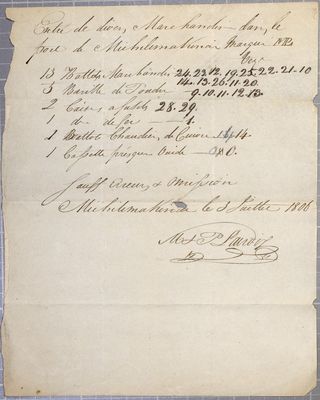 Entré de divers Marchandis dans le
fort de Michilimakinac Marque
13 Ballots Marchandis 24.23.12.19.25.22.21.10
14.13.26.11.20.
3 Barills de Poudre 9.10.11.12.13.
2 Caisse 28.29.
1 de fer 1.
1 Ballot Chaudier de Cuivre 14.
1 Cassette presque Vuide 0.
Sauff Erreur & omission
Michilimakinac le 3 Juillet 1806